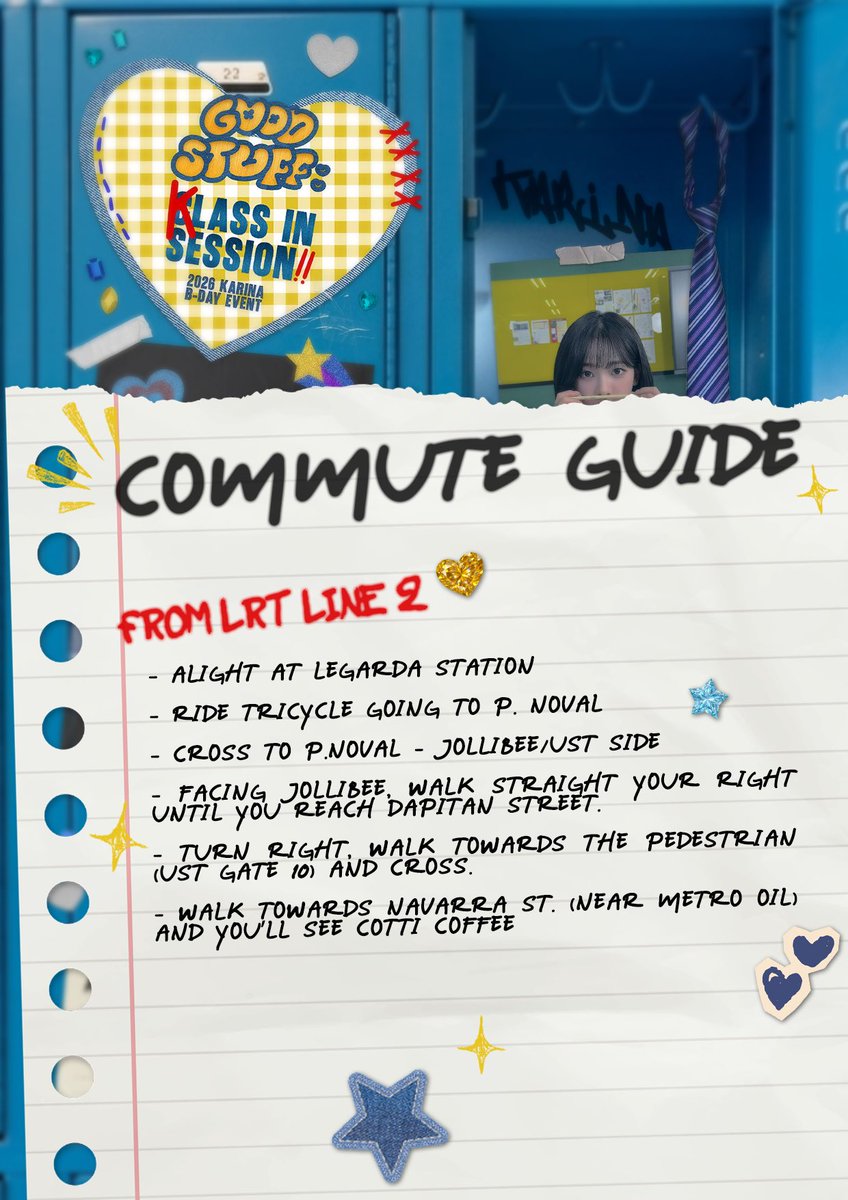 22 2
GOOD
STUFF:
KLASS IN
SESSION!!
2026 KARINA
B-DAY EVENT
KARINA
COMMUTE GUIDE
FROM LRT LINE 2
- ALIGHT AT LEGARDA STATION
- RIDE TRICYCLE GOING TO P. NOVAL
- CROSS TO P.NOVAL - JOLLIBEE/UST SIDE
- FACING JOLLIBEE, WALK STRAIGHT YOUR RIGHT
UNTIL YOU REACH DAPITAN STREET.
- TURN RIGHT, WALK TOWARDS THE PEDESTRIAN
(UST GATE 10) AND CROSS.
- WALK TOWARDS NAVARRA ST. (NEAR METRO OIL)
AND YOU'LL SEE COTTI COFFEE